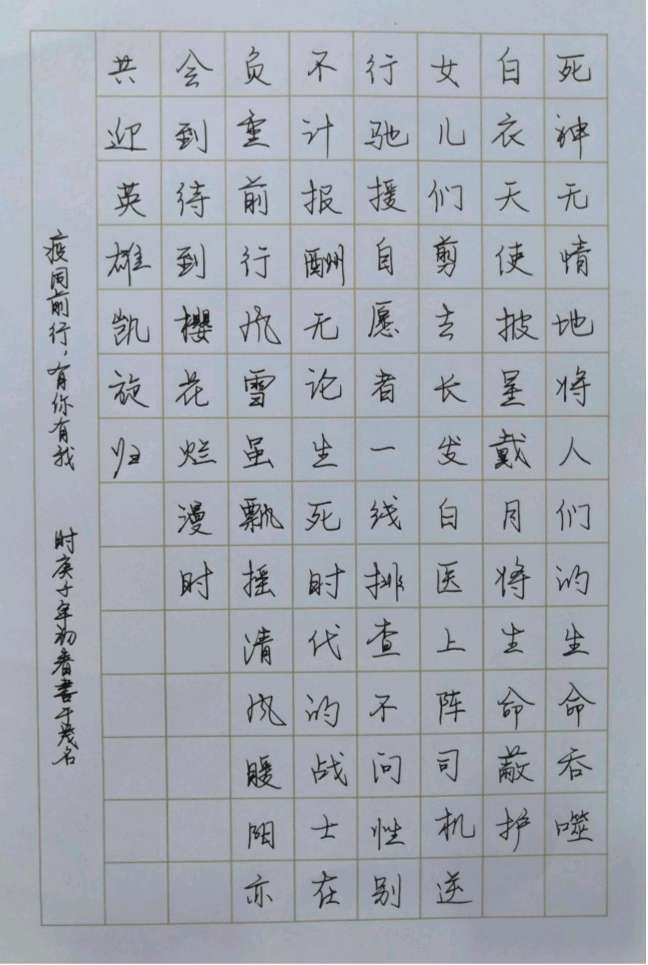 死神无情地将人们的生命吞噬
白衣天使披星戴月将生命蔽护
女儿们剪去长发白医上阵司机逆
行驰援自愿者一线排查不问性别
不计报酬无论生死时代的战士在
负重前行风雪虽飘摇清风暖阳亦
会到待到樱花烂漫时
共迎英雄凯旋归
疫同前行，有你有我
时庚子年初春书于茂名